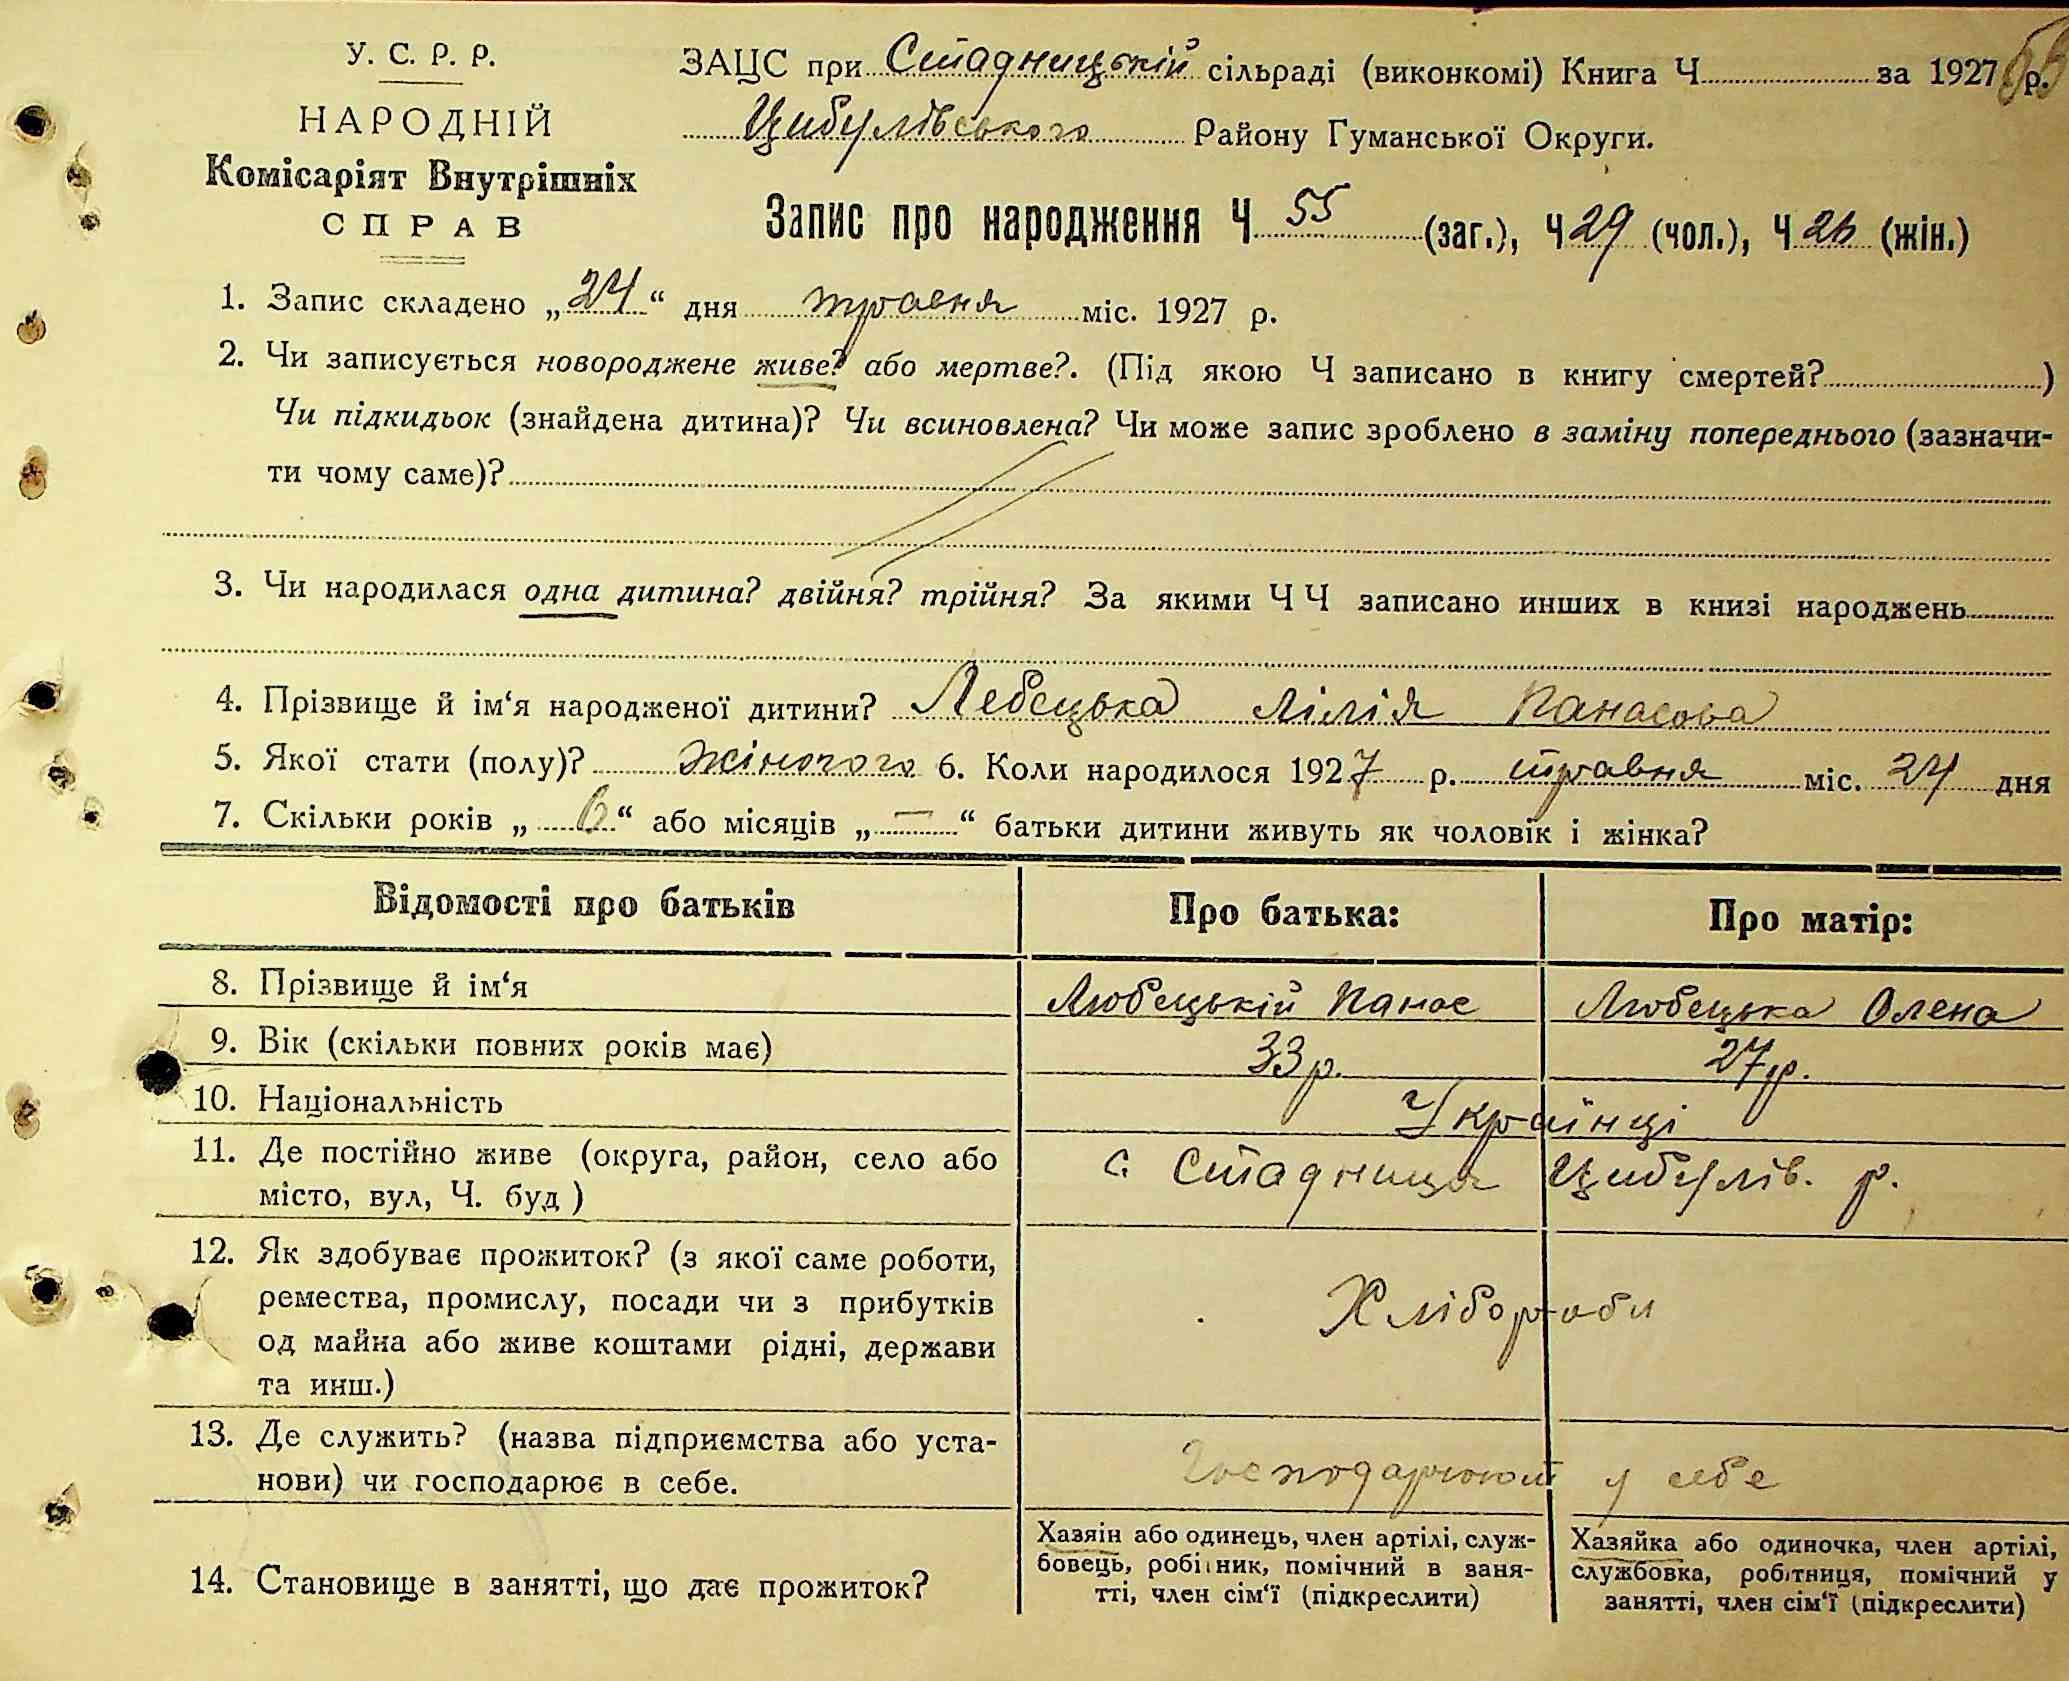 У. С. Р. Р.
НАРОДНІЙ
Комісаріят Внутрішніх
СПРАВ
ЗАЦС при Стадницькій сільраді (виконкомі) Книга Ч за 1927 р.
Цибулівського Району Гуманської Округи.
Запис про народження Ч 55 (заг.), Ч 29 (чол.), Ч 26 (жін.)
1. Запис складено „24“ дня травня міс. 1927 р.
2. Чи записується новороджене живе? або мертве?. (Під якою Ч записано в книгу смертей? )
Чи підкидьок (знайдена дитина)? Чи всиновлена? Чи може запис зроблено в заміну попереднього (зазначи-
ти чому саме)?
3. Чи народилася одна дитина? двійня? трійня? За якими Ч Ч записано инших в книзі народжень
4. Прізвище й ім‘я народженої дитини? Лебецька Лілія Панасова
5. Якої стати (полу)? Жіночого 6. Коли народилося 1927 р. травня міс. 24 дня
7. Скільки років „ 6 “ або місяців „ — “ батьки дитини живуть як чоловік і жінка?
Відомості про батьків Про батька: Про матір:
8. Прізвище й ім‘я Любецькій Панас Любецька Олена
9. Вік (скільки повних років має) 33 р. 27 р.
10. Національність Українці
11. Де постійно живе (округа, район, село або
місто, вул, Ч. буд ) с. Стадниця Цибулів. р.
12. Як здобуває прожиток? (з якої саме роботи,
ремества, промислу, посади чи з прибутків
од майна або живе коштами рідні, держави
та инш.) Хлібороби
13. Де служить? (назва підприємства або уста-
нови) чи господарює в себе. Господарюют у себе
14. Становище в занятті, що дає прожиток?
Хазяін або одинець, член артілі, служ-
бовець, робітник, помічний в заня-
тті, член сім‘ї (підкреслити)
Хазяйка або одиночка, член артілі,
службовка, робітниця, помічний у
занятті, член сім‘ї (підкреслити)